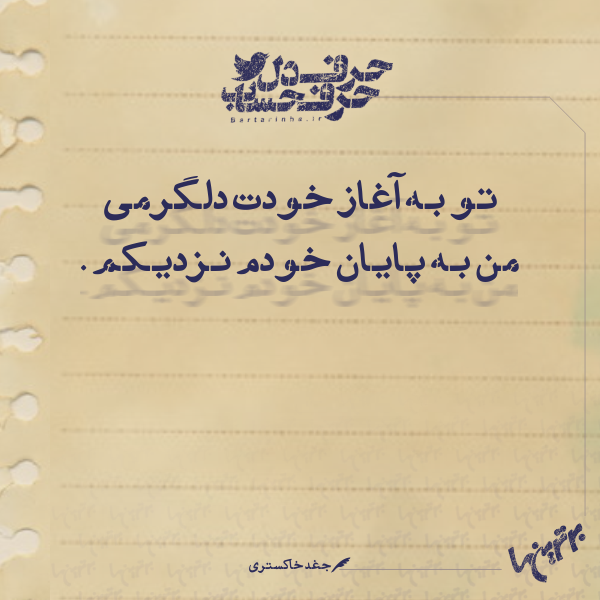 حرف دل
حرف حساب
Bartarinha.ir
تو به آغاز خودت دلگرمی
من به پایان خودم نزدیکم .
جغد خاکستری
برترین‌ها